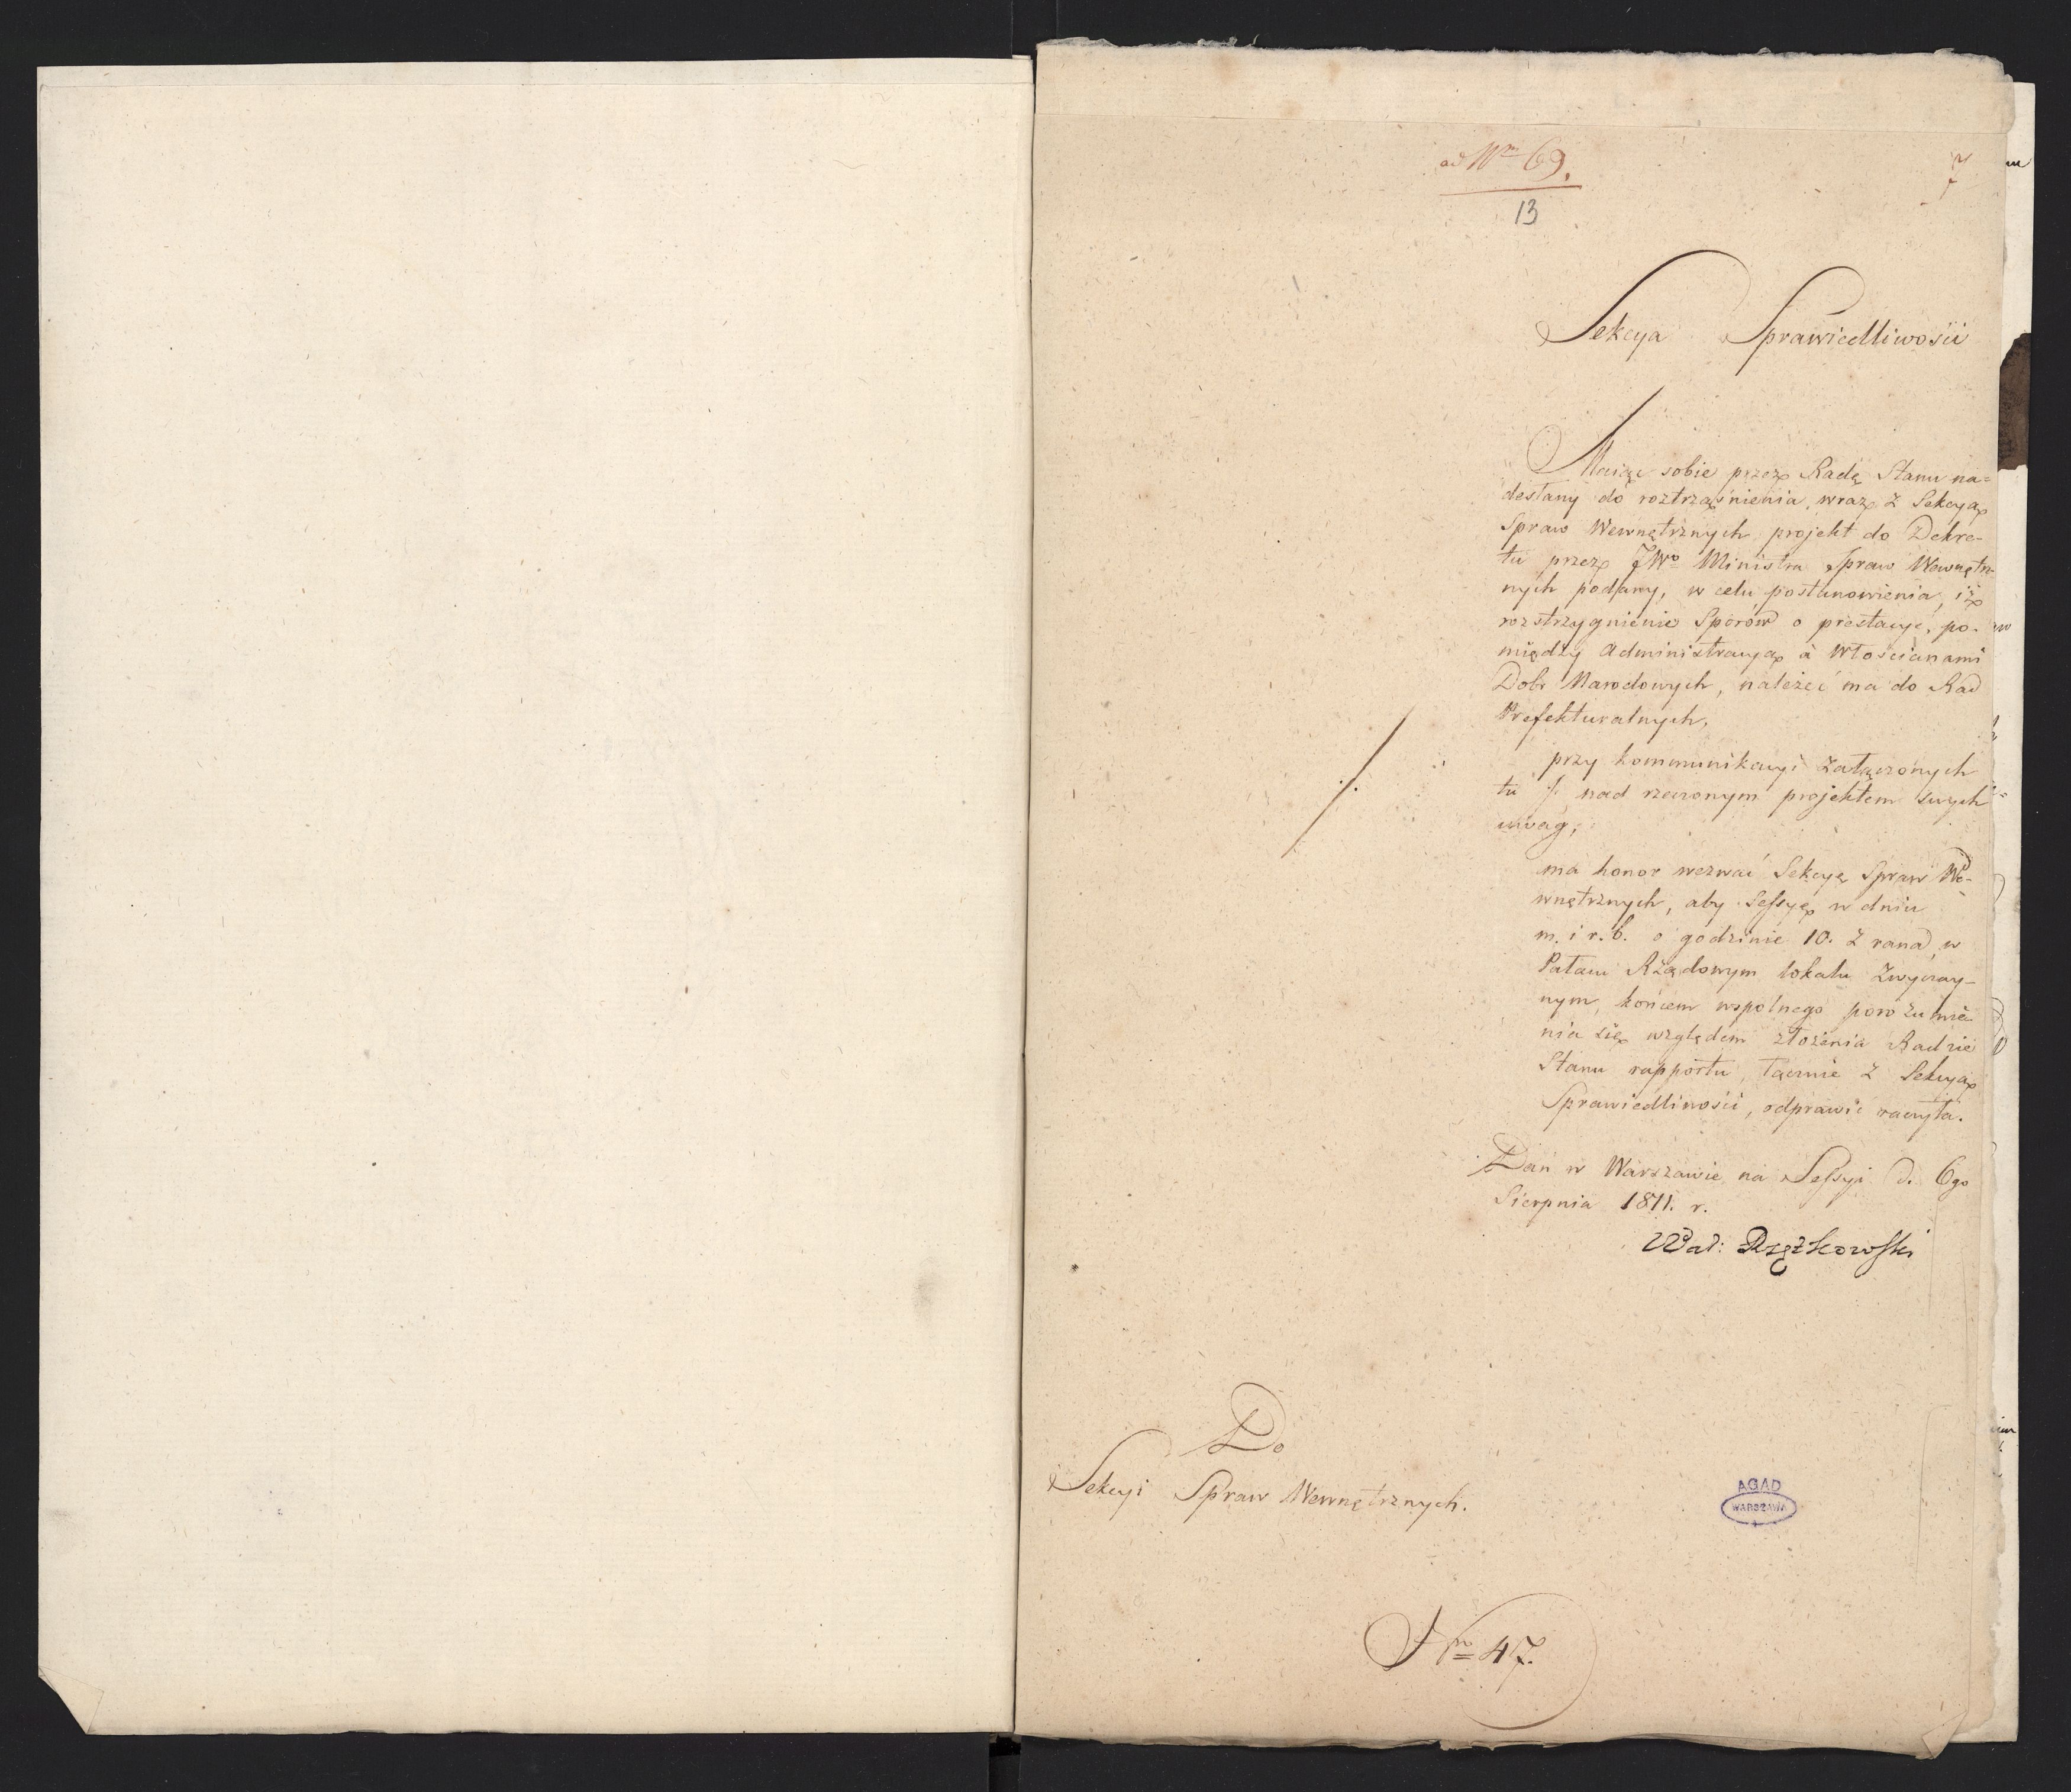 ad Nrm 69.
13
7
Sekcya Sprawiedliwości
Maiąc sobie przez Radę Stanu na=
desłany do roztrząśnienia, wraz z Sekcyą
Spraw Wewnętrznych, projekt do Dekre-
tu przez JWo Ministra Spraw Wewnętrz-
nych podany, w celu postanowienia, iż
rozstrzygnienie Sporów o prestacye, po-
między Administracyą a Włościanami
Dobr Narodowych, należeć ma do Rad
Prefekturalnych,
przy kommunikacyi załączonych
tu /. nad rzeczonym projektem swych
uwag,
/.
ma honor wezwać Sekcyę Spraw We-
wnętrznych, aby Sessyę w dniu
m. i r. b. o godzinie 10. z rana, w
Pałacu Rządowym lokalu zwyczay-
nym, końcem wspolnego porozumie-
nia się względem złożenia Radzie
Stanu rapportu, łącznie z Sekcyą
Sprawiedliwości, odprawić raczyła.
Dan w Warszawie na Sessyi d. 6go
Sierpnia 1811. r.
Wal:
Do
Sekcyi Spraw Wewnętrznych.
AGAD
WARSZAWA
Nro 47.